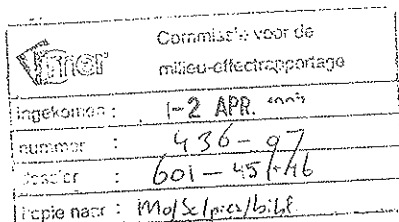 mer
Commissie voor de
milieu-effectrapportage
ingekomen : 1-2 APR.
nummer : 436-97
dossier : 601-45/46
kopie naar : Mo/Sc/pres/bibl.